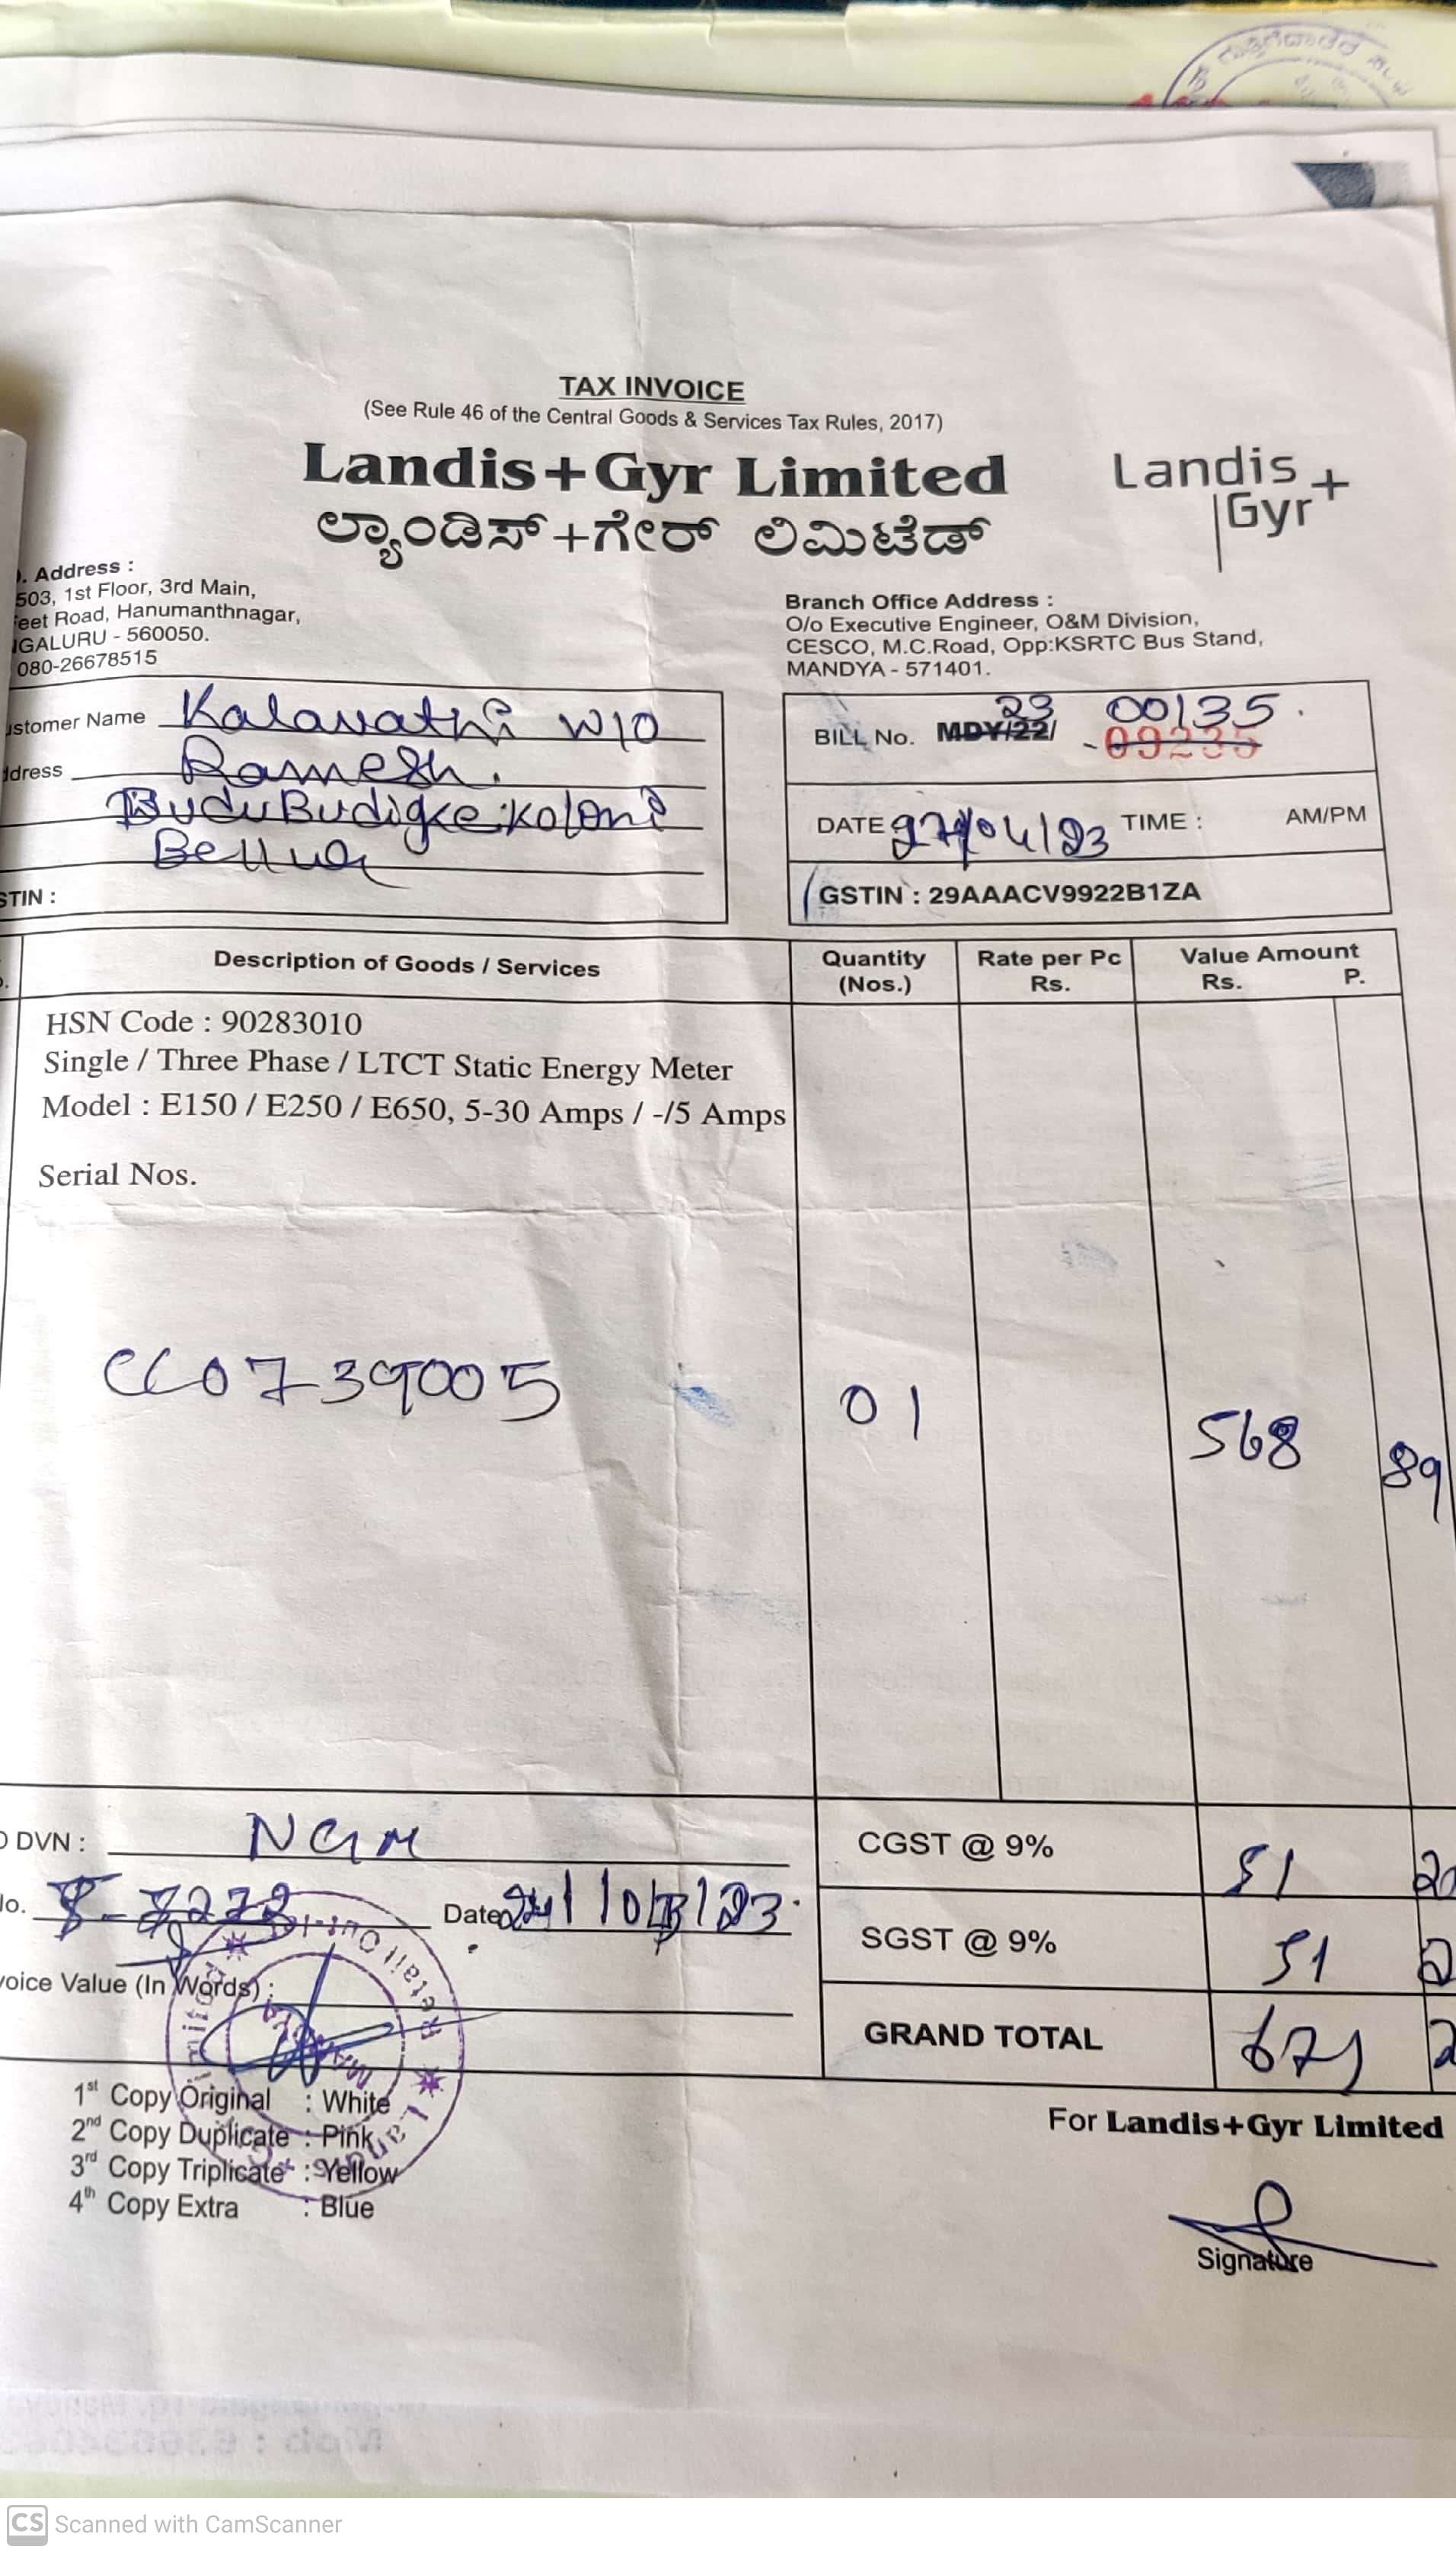 TAX INVOICE
(See Rule 46 of the Central Goods & Services Tax Rules, 2017)
Landis+Gyr Limited
ಲ್ಯಾಂಡಿಸ್+ಗೇರ್ ಲಿಮಿಟೆಡ್
Landis+
Gyr
. Address :
503, 1st Floor, 3rd Main,
eet Road, Hanumanthnagar,
GALURU - 560050.
080-26678515
Branch Office Address :
O/o Executive Engineer, O&M Division,
CESCO, M.C.Road, Opp:KSRTC Bus Stand,
MANDYA - 571401.
ustomer Name Kalavathi W/O
ddress Ramesh.
BuduBudigke:koloni
Bellur
STIN :
23 00135.
BILL No. MDY/22/ - 09235
DATE 27/04/23 TIME : AM/PM
GSTIN : 29AAACV9922B1ZA
Description of Goods / Services
Quantity (Nos.)
Rate per Pc Rs.
Value Amount
Rs. P.
HSN Code : 90283010
Single / Three Phase / LTCT Static Energy Meter
Model : E150 / E250 / E650, 5-30 Amps / -/5 Amps
Serial Nos.
CC0739005 01 568 89
DVN : NGM
CGST @ 9% 51
o. Date
SGST @ 9% 51
voice Value (In Words) :
GRAND TOTAL 671
1st Copy Original : White
2nd Copy Duplicate : Pink
3rd Copy Triplicate : Yellow
4th Copy Extra : Blue
For Landis+Gyr Limited
Signature
CS Scanned with CamScanner